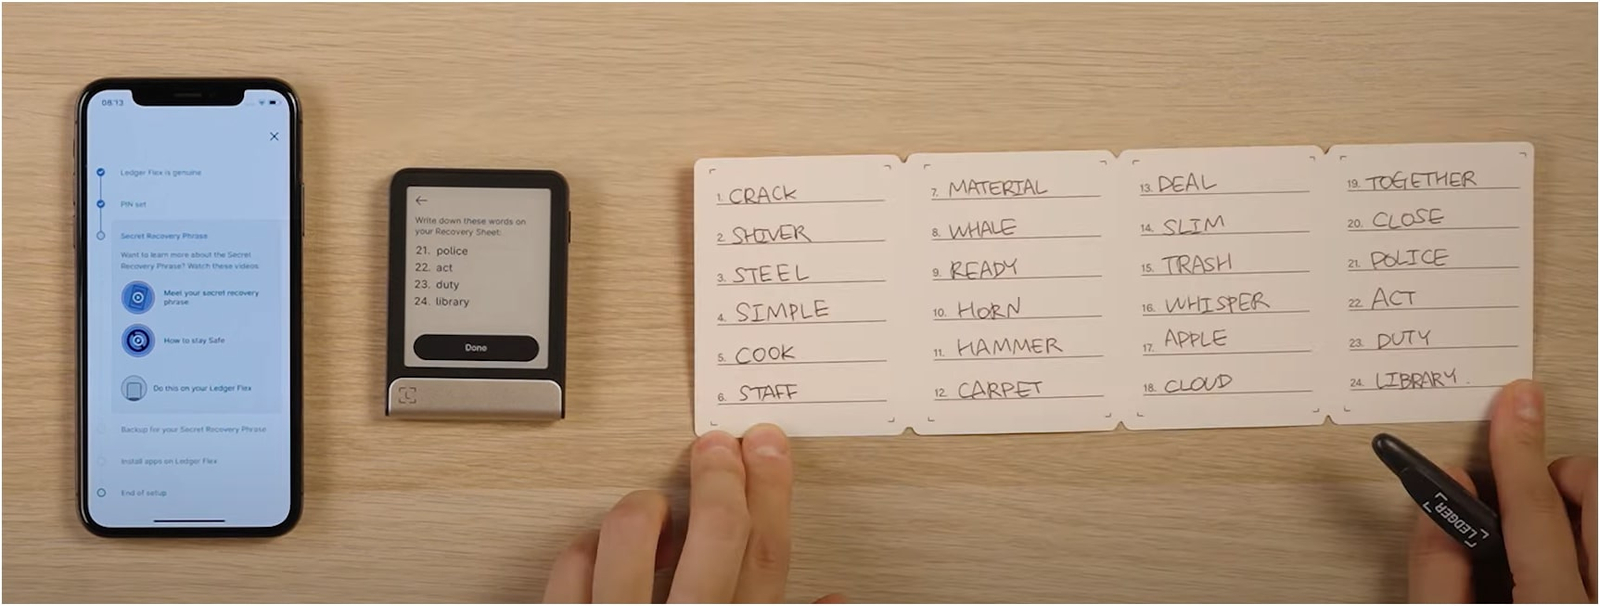 08:13
Ledger Flex is genuine
PIN set
Secret Recovery Phrase
Want to learn more about the Secret
Recovery Phrase? Watch these videos
Meet your secret recovery
phrase
How to stay Safe
Do this on your Ledger Flex
Backup for your Secret Recovery Phrase
Install apps on Ledger Flex
End of setup
Write down these words on
your Recovery Sheet:
21. police
22. act
23. duty
24. library
Done
1. CRACK
2. SHIVER
3. STEEL
4. SIMPLE
5. COOK
6. STAFF
7. MATERIAL
8. WHALE
9. READY
10. HORN
11. HAMMER
12. CARPET
13. DEAL
14. SLIM
15. TRASH
16. WHISPER
17. APPLE
18. CLOUD
19. TOGETHER
20. CLOSE
21. POLICE
22. ACT
23. DUTY
24. LIBRARY.
LEDGER